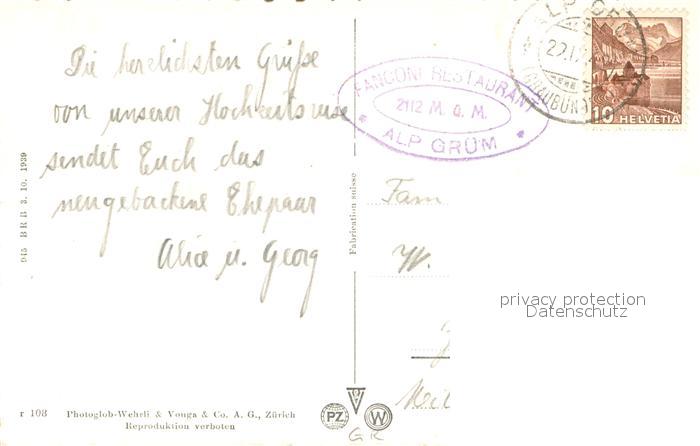 Die herzlichsten Grüße
von unserer Hochzeitsreise
sendet Euch das
neugebackene Ehepaar
Alice u. Georg
945 BRB 3. 10. 1939
r 108 Photoglob-Wehrli & Vouga & Co. A. G., Zürich
Reproduktion verboten
Fabrication suisse
FANCONI RESTAURANT
2112 M. ü. M.
* ALP GRÜM *
ALP GRÜM
(GRAUBÜNDEN)
10 HELVETIA
Fam
W.
privacy protection
Datenschutz
PZ
W
GR